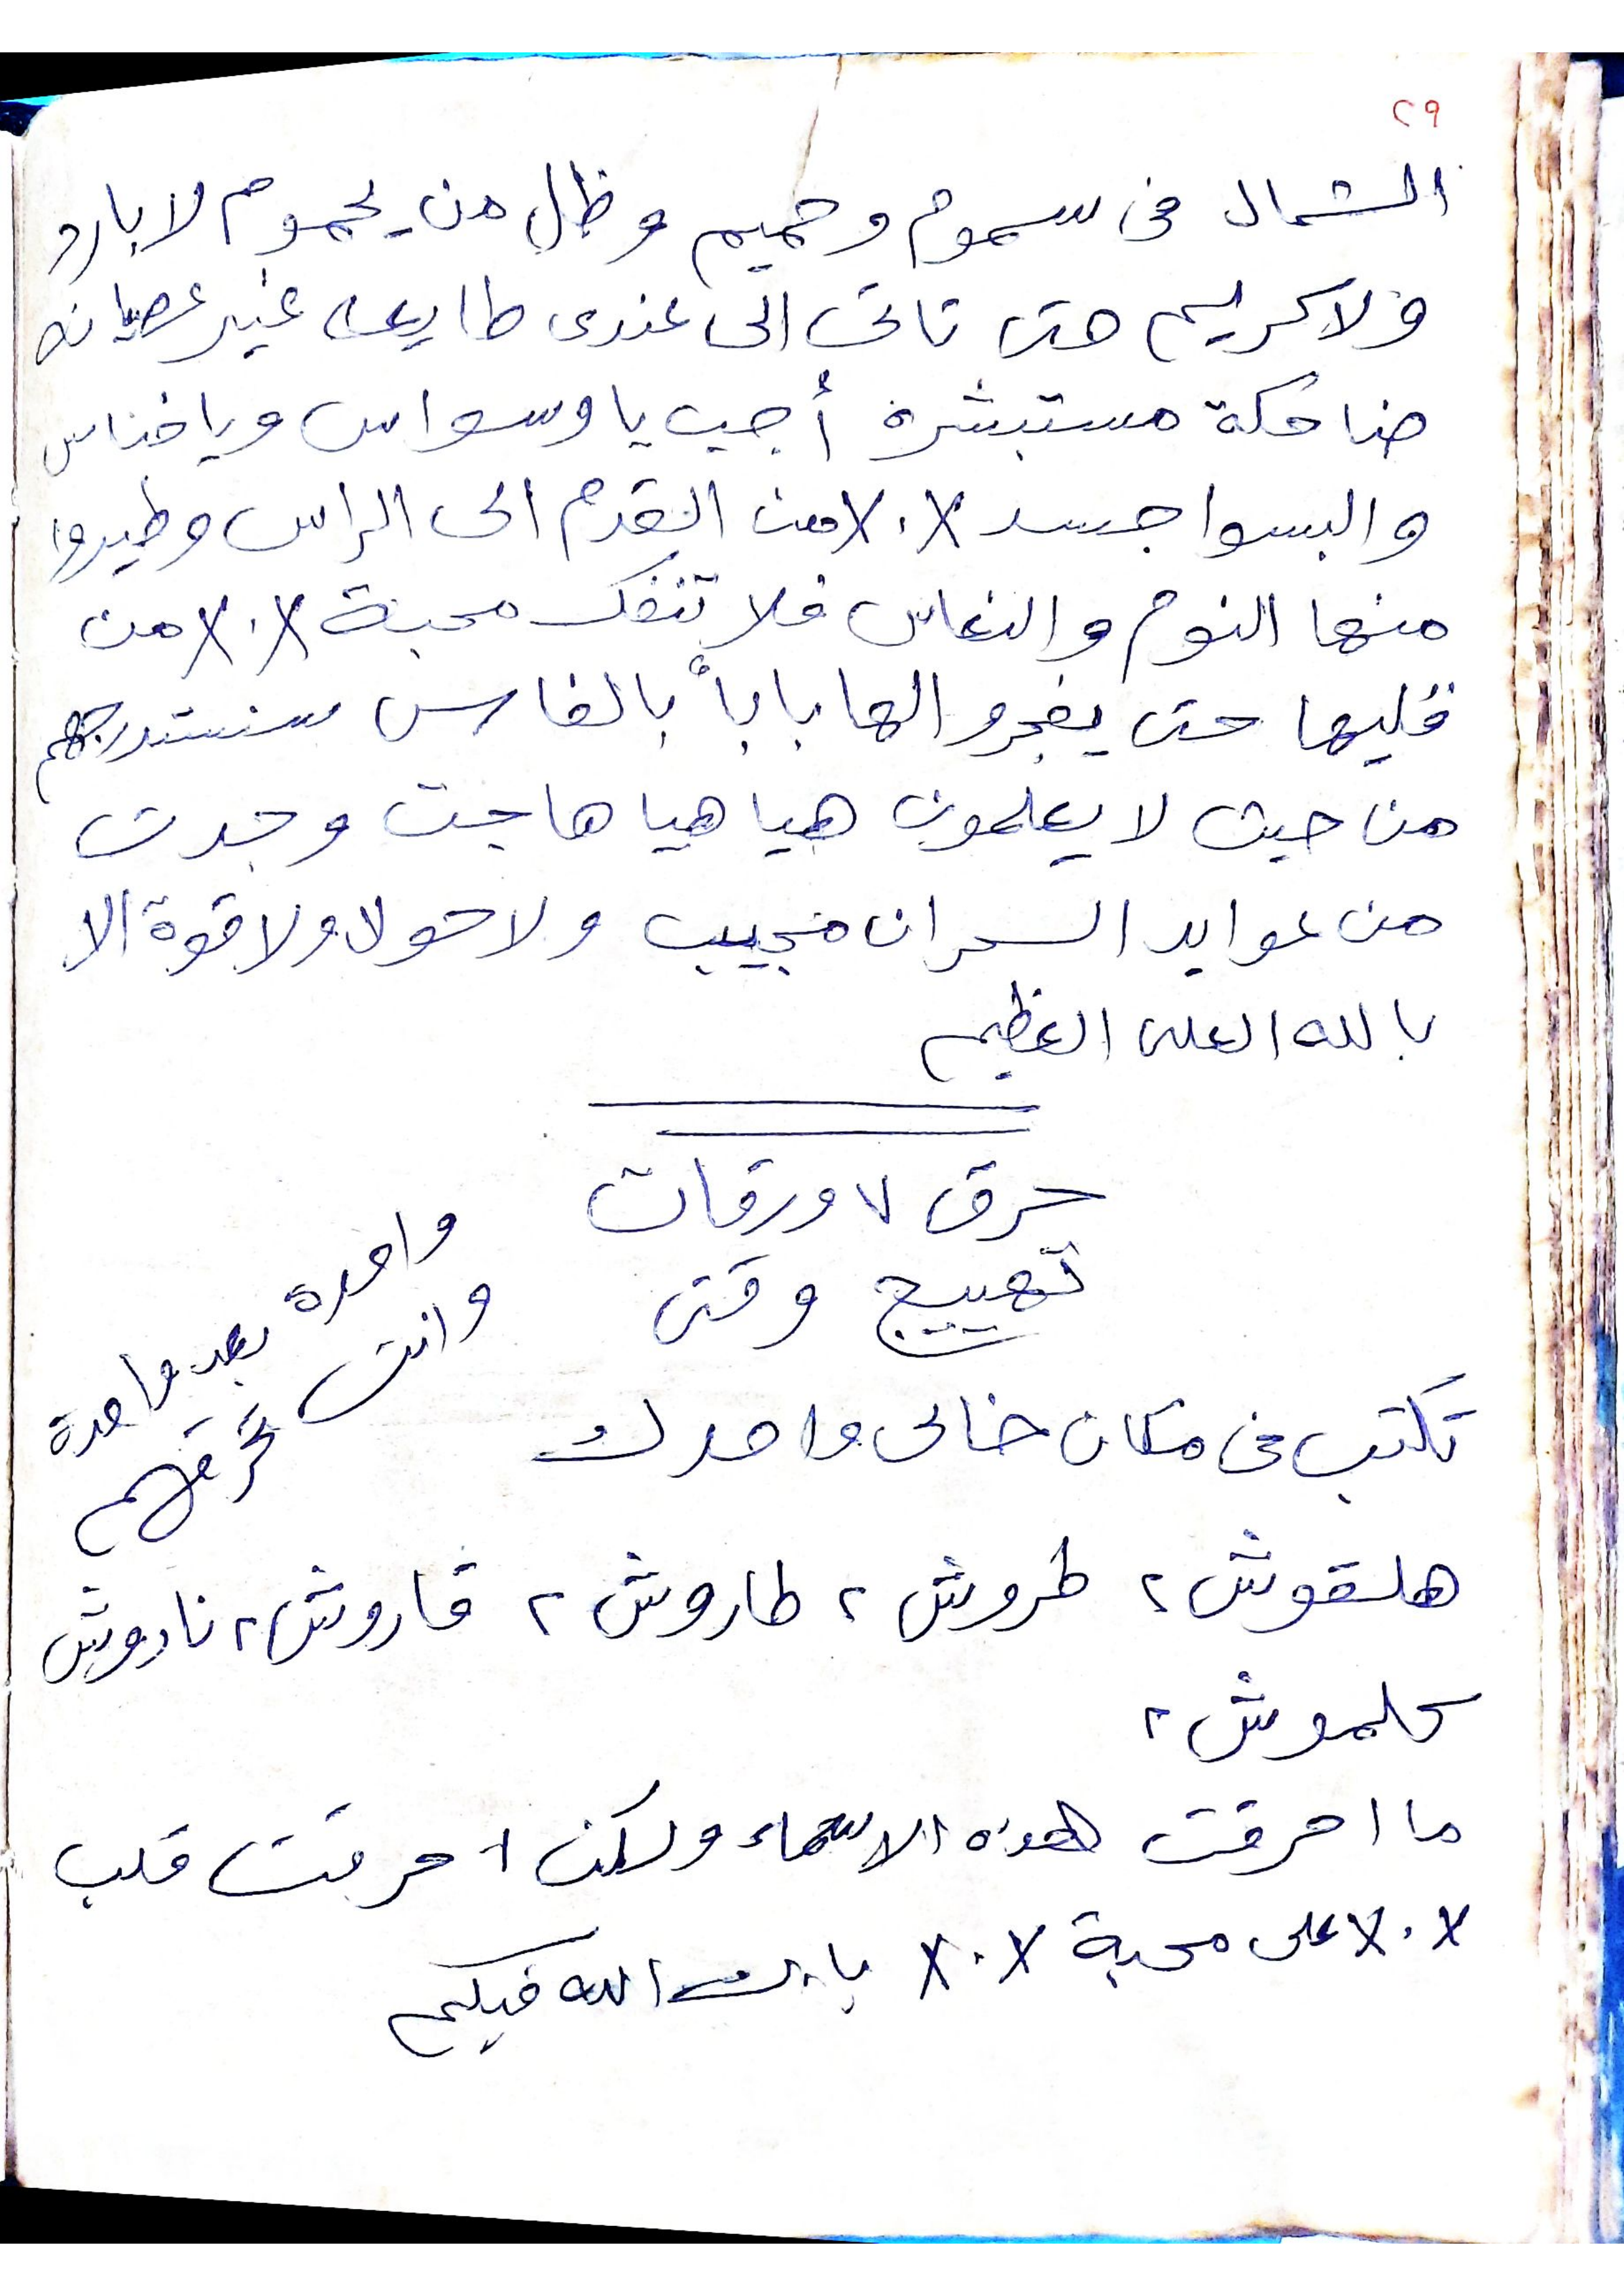 ٢٩
الشمال فى سموم وحميم وظل من يحموم لا بارد
ولا كريم حتى تاتى الى عندى طايعه غير عصيانه
ضاحكة مستبشرة أجيب يا وسواس ويا خناس
والبسوا جسد X.X من القدم الى الراس وطيروا
منها النوم والنعاس فلا تنفك محبة X.X من
قليها حتى يفجروا لها باباً بالفاس سنستدرجهم
من حيث لا يعلمون هيا هيا هاجت وجدت
من عوايد السحران مجيب ولا حولا ولا قوة الا
بالله العلى العظيم
حرق ٧ ورقات
تهييج وقتى
واحدة بعد واحدة
وانت تحرقهم
تكتب فى مكان خالى واحدك
هلقوش ٢ طروش ٢ طاروش ٢ قاروش ٢ ناروش
كلموش ٢
ما احرقت هذه الاسماء ولكن احرقت قلب
X.X على محبة X.X بارك الله فيكم